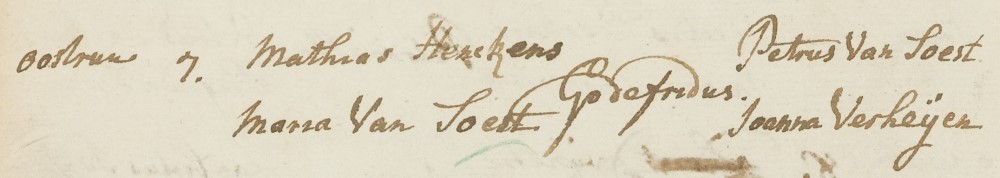 oostrum 7. Mathias Henckens Petrus Van Soest
Godefridus.
Maria Van Soest Joanna Verheÿen